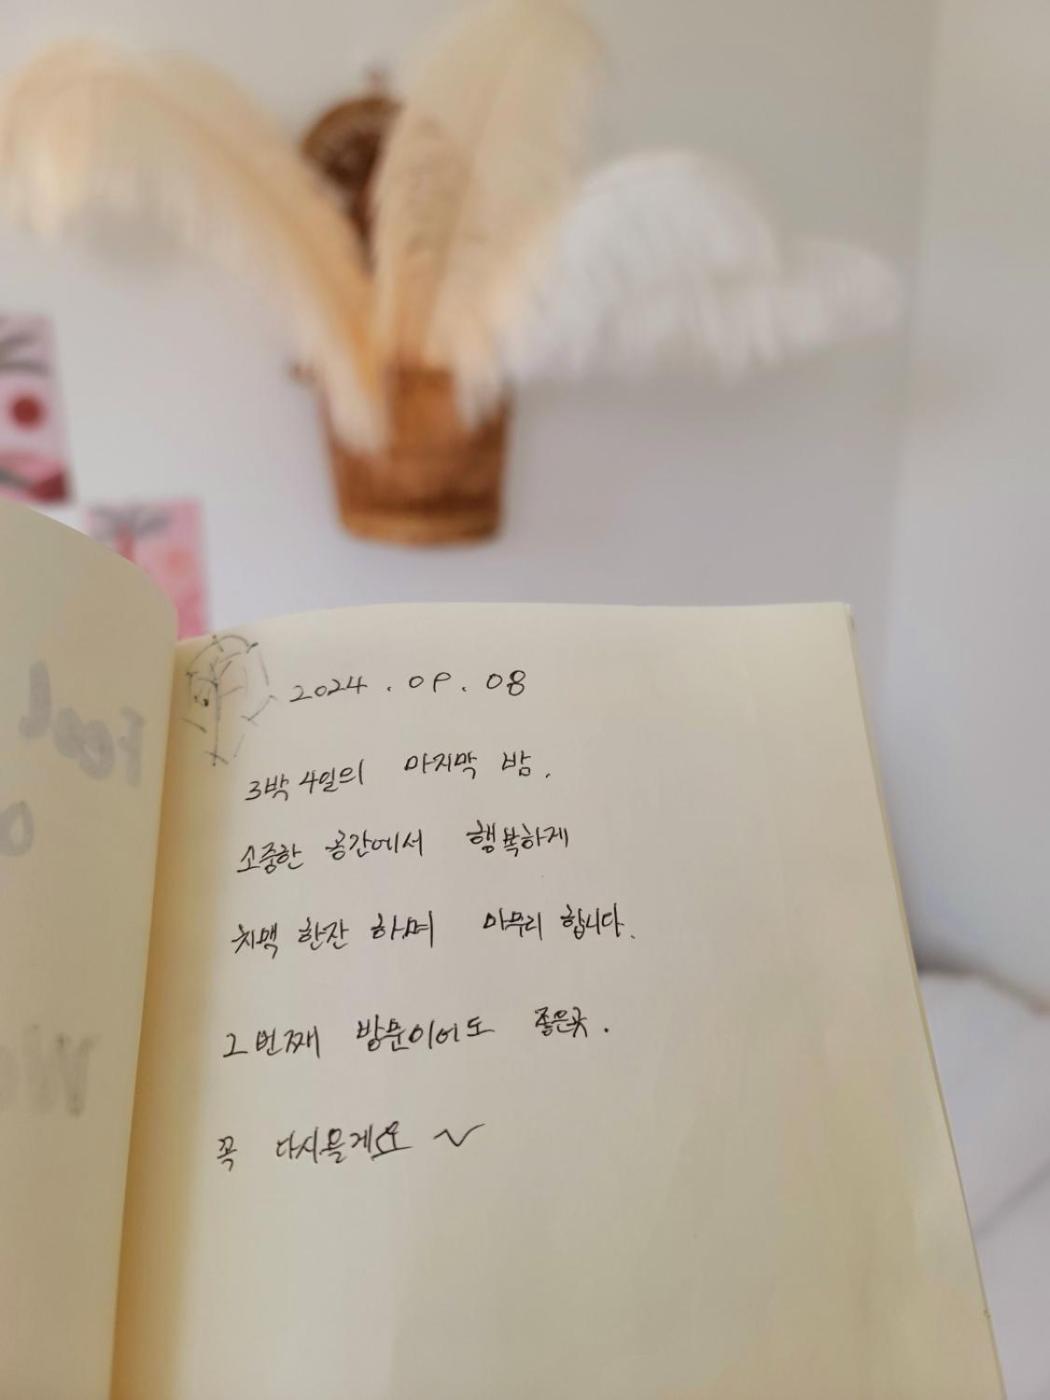 2024 . 09. 08
3박 4일의 마지막 밤.
소중한 공간에서 행복하게
치맥 한잔 하며 마무리 합니다.
2번째 방문이어도 좋은곳.
꼭 다시올게요 ~